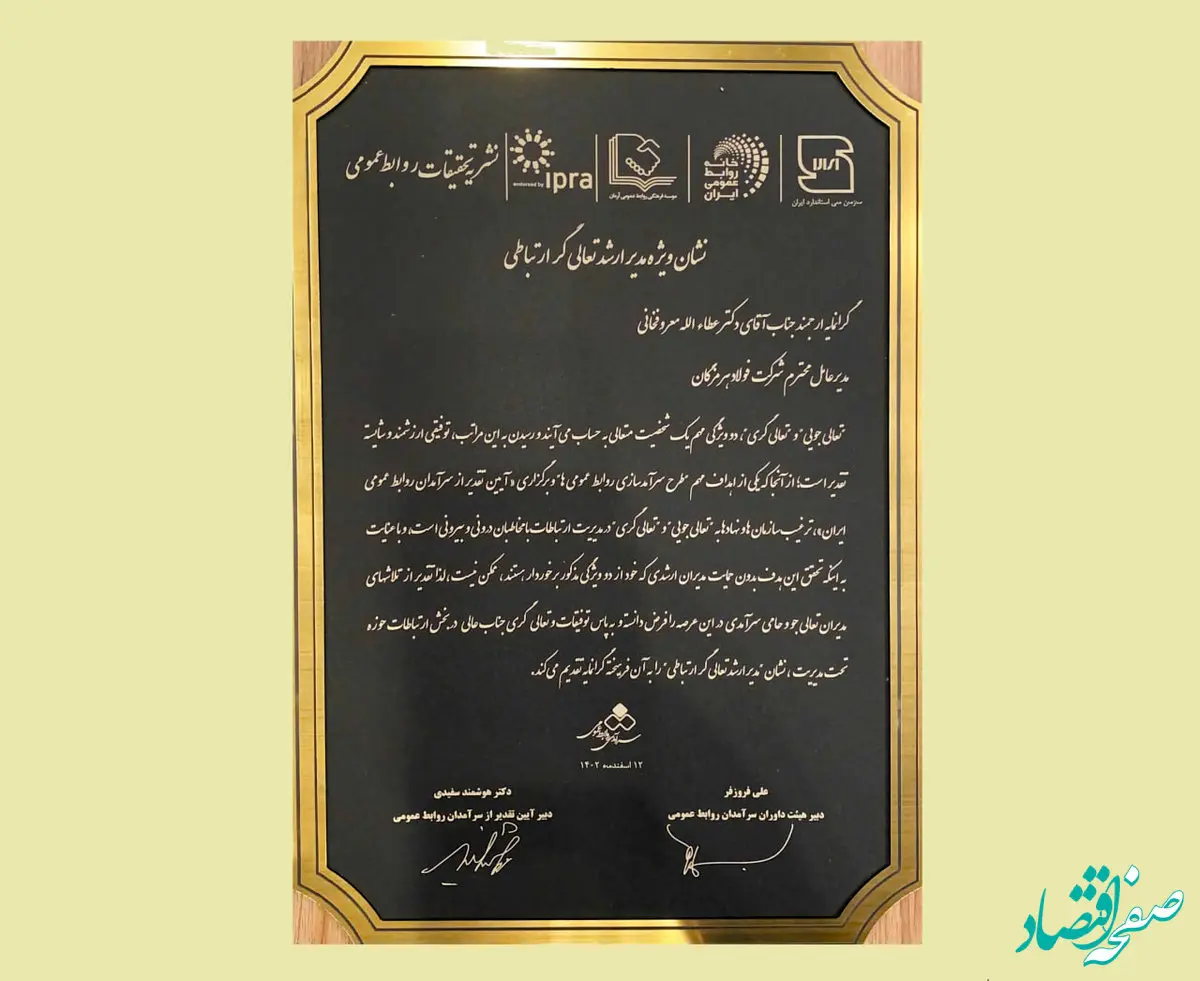 ایران
سازمان ملی استاندارد ایران
خانه
روابط
عمومی
ایران
موسسه فرهنگی روابط عمومی آرمان
endorsed by ipra
نشریه تحقیقات روابط عمومی
نشان ویژه مدیر ارشد تعالی گر ارتباطی
گرانمایه ارجمند جناب آقای دکتر عطاء الله معروفخانی
مدیرعامل محترم شرکت فولاد هرمزگان
"تعالی جویی" و "تعالی گری"، دو ویژگی مهم یک شخصیت متعالی به حساب می آیند و رسیدن به این مراتب، توفیقی ارزشمند و شایسته
تقدیر است؛ از آنجا که یکی از اهداف مهم "طرح سرآمدسازی روابط عمومی ها" و برگزاری «آیین تقدیر از سرآمدان روابط عمومی
ایران»، ترغیب سازمان ها و نهادها به "تعالی جویی" و "تعالی گری" در مدیریت ارتباطات با مخاطبان درونی و بیرونی است، و با عنایت
به اینکه تحقق این هدف بدون حمایت مدیران ارشدی که خود از دو ویژگی مذکور برخوردار هستند، ممکن نیست، لذا تقدیر از تلاشهای
مدیران تعالی جو و حامی سرآمدی در این عرصه را فرض دانسته و به پاس توفیقات و تعالی گری جناب عالی در بخش ارتباطات حوزه
تحت مدیریت، نشان "مدیر ارشد تعالی گر ارتباطی" را به آن فرهیخته گرانمایه تقدیم می کند.
سرآمدی روابط عمومی
۱۲ اسفندماه ۱۴۰۲
علی فروزفر
دبیر هیئت داوران سرآمدان روابط عمومی
دکتر هوشمند سفیدی
دبیر آیین تقدیر از سرآمدان روابط عمومی
صفحه اقتصاد